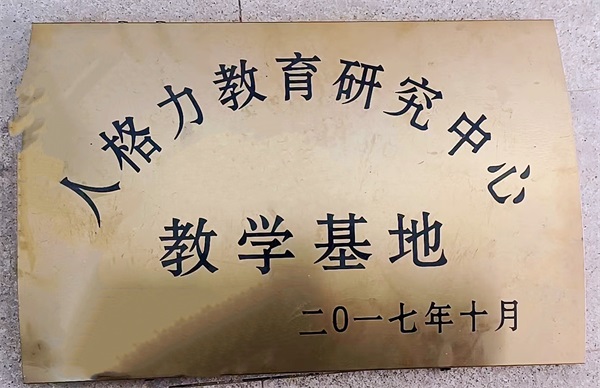 人格力教育研究中心
教学基地
二0一七年十月